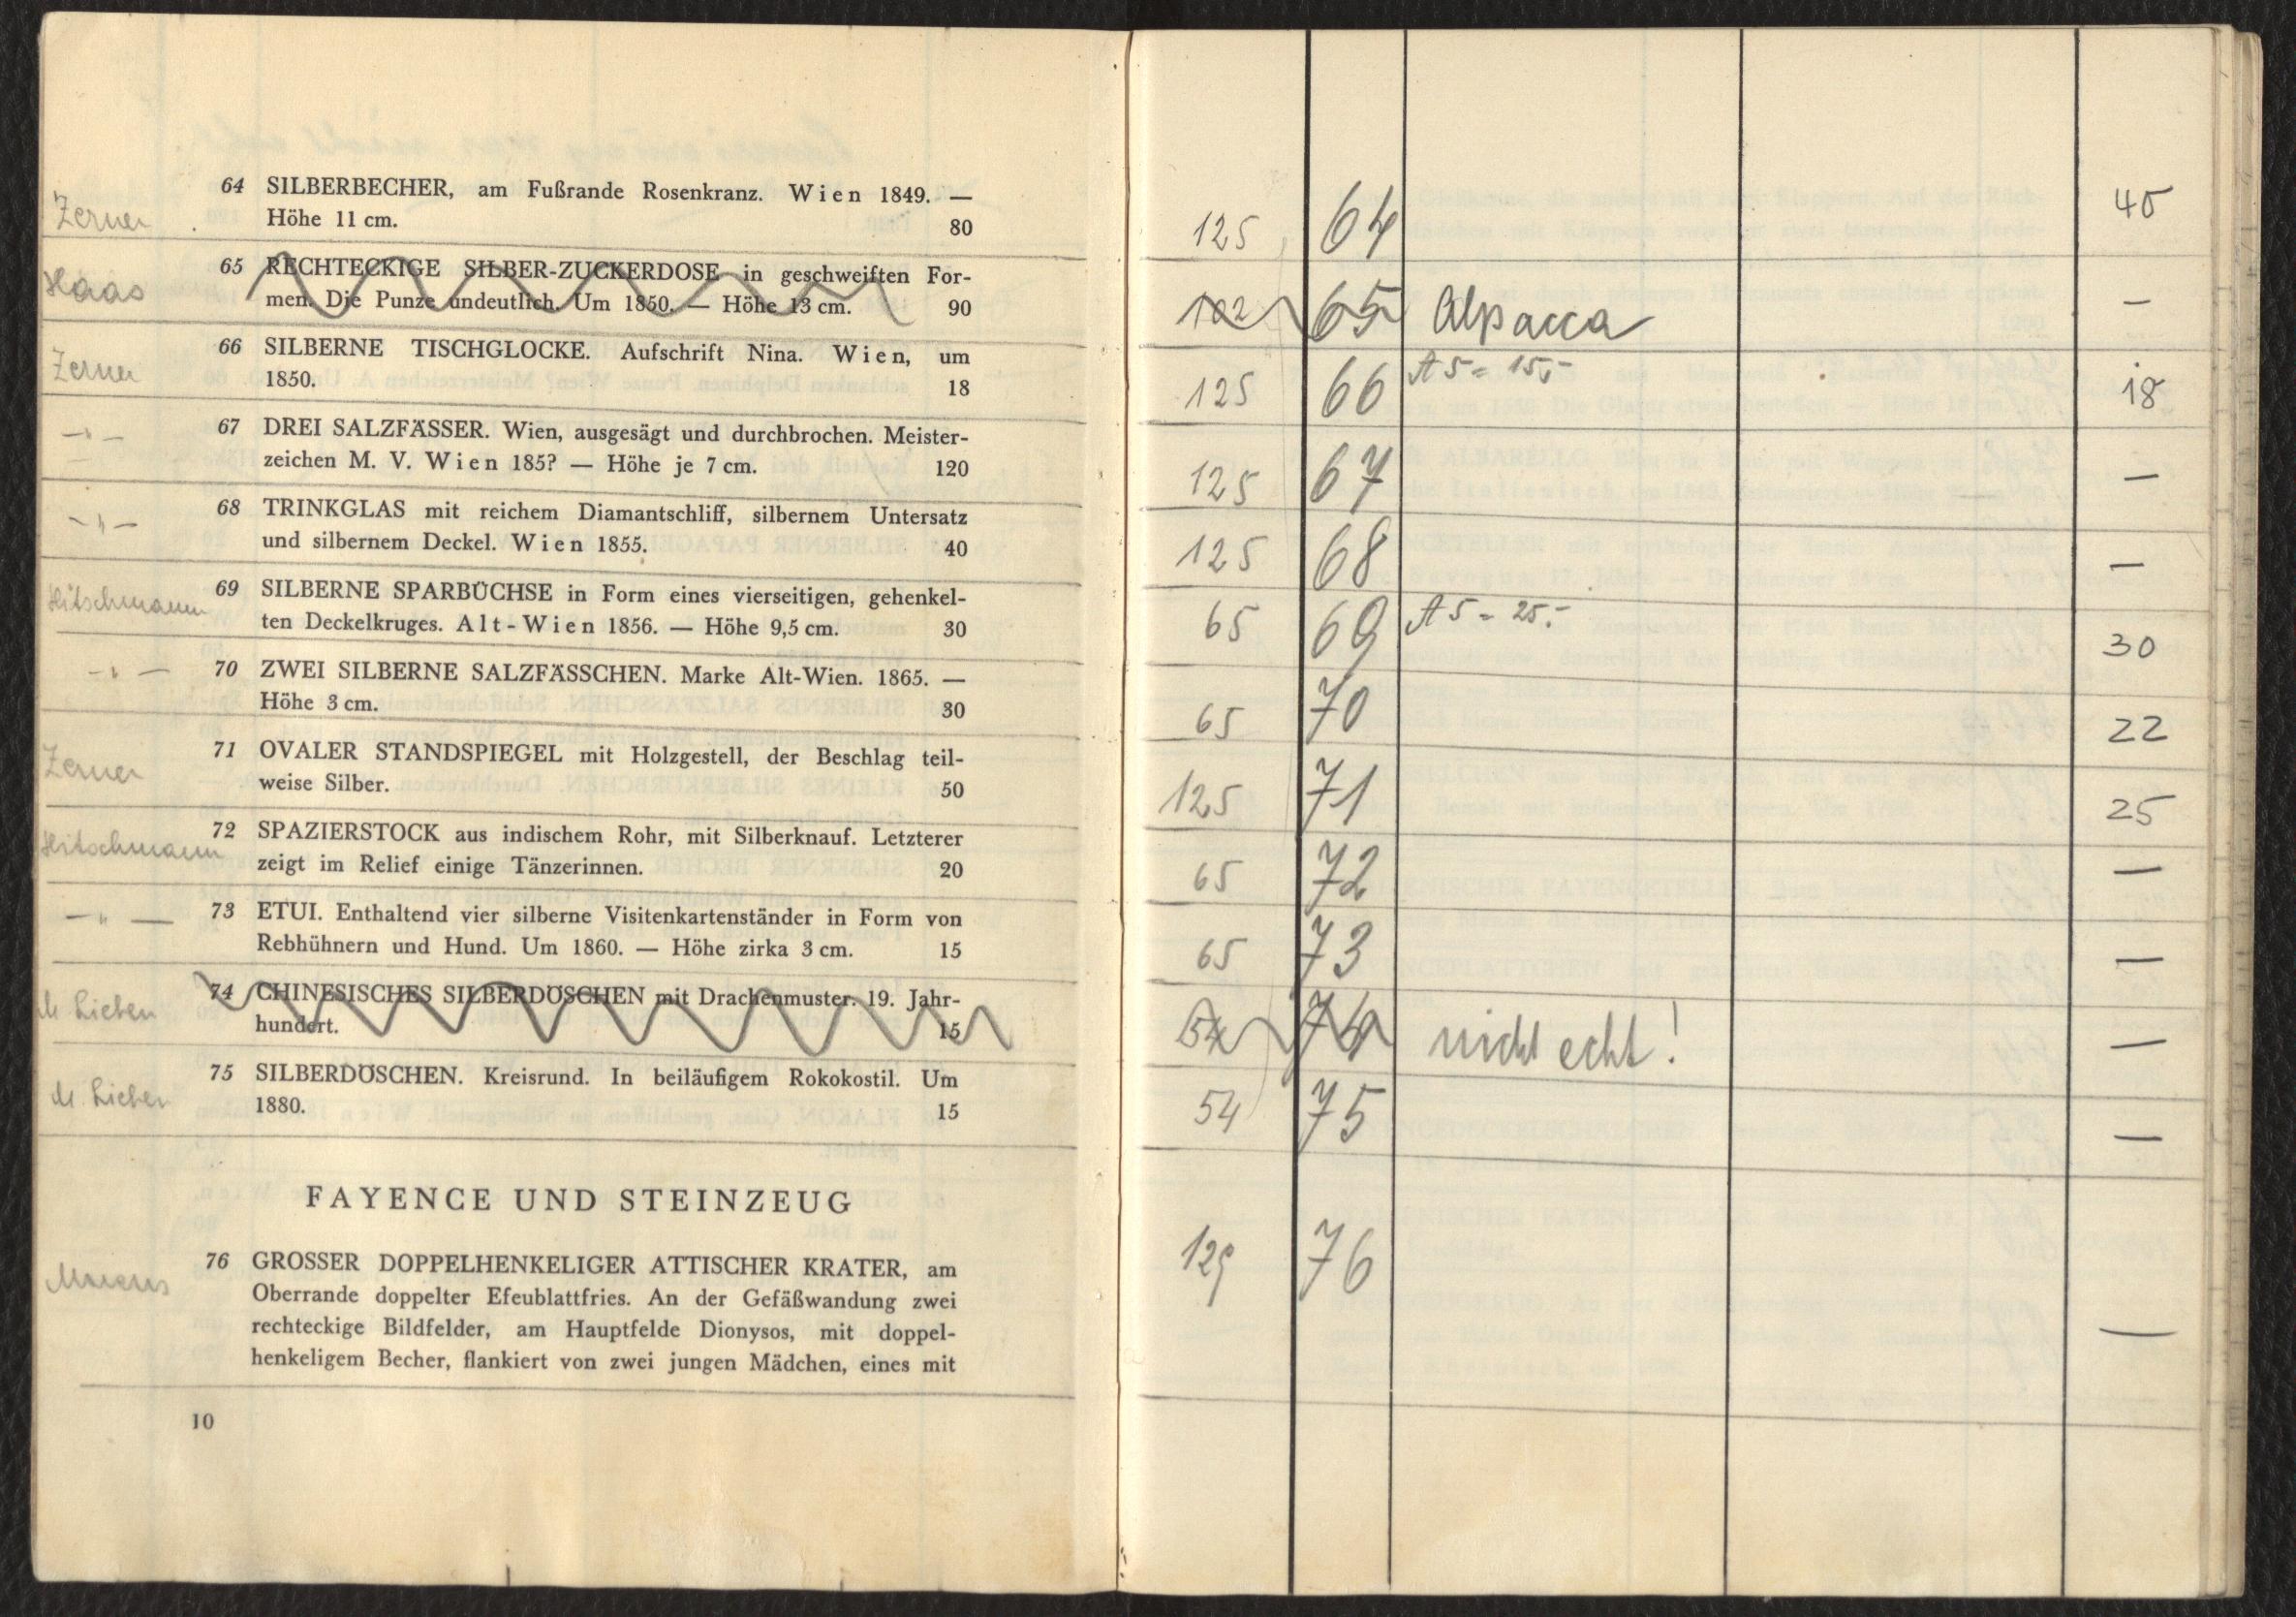 Zerner
64 SILBERBECHER, am Fußrande Rosenkranz. Wien 1849. —
Höhe 11 cm. 80
Haas
65 RECHTECKIGE SILBER-ZUCKERDOSE in geschweiften For-
men. Die Punze undeutlich. Um 1850. — Höhe 13 cm. 90
Zerner
66 SILBERNE TISCHGLOCKE. Aufschrift Nina. Wien, um
1850. 18
—"—
67 DREI SALZFÄSSER. Wien, ausgesägt und durchbrochen. Meister-
zeichen M. V. Wien 185? — Höhe je 7 cm. 120
—"—
68 TRINKGLAS mit reichem Diamantschliff, silbernem Untersatz
und silbernem Deckel. Wien 1855. 40
Hitschmann
69 SILBERNE SPARBÜCHSE in Form eines vierseitigen, gehenkel-
ten Deckelkruges. Alt-Wien 1856. — Höhe 9,5 cm. 30
—"—
70 ZWEI SILBERNE SALZFÄSSCHEN. Marke Alt-Wien. 1865. —
Höhe 3 cm. 30
Zerner
71 OVALER STANDSPIEGEL mit Holzgestell, der Beschlag teil-
weise Silber. 50
Hitschmann
72 SPAZIERSTOCK aus indischem Rohr, mit Silberknauf. Letzterer
zeigt im Relief einige Tänzerinnen. 20
—"—
73 ETUI. Enthaltend vier silberne Visitenkartenständer in Form von
Rebhühnern und Hund. Um 1860. — Höhe zirka 3 cm. 15
M. Lieben
74 CHINESISCHES SILBERDÖSCHEN mit Drachenmuster. 19. Jahr-
hundert. 15
M. Lieben
75 SILBERDÖSCHEN. Kreisrund. In beiläufigem Rokokostil. Um
1880. 15
FAYENCE UND STEINZEUG
76 GROSSER DOPPELHENKELIGER ATTISCHER KRATER, am
Oberrande doppelter Efeublattfries. An der Gefäßwandung zwei
rechteckige Bildfelder, am Hauptfelde Dionysos, mit doppel-
henkeligem Becher, flankiert von zwei jungen Mädchen, eines mit
10
125 64 45
102 65 Alpacca —
125 66 A 5 = 15,- 18
125 67 —
125 68 —
65 69 A 5 = 25.- 30
65 70 22
125 71 25
65 72 —
65 73 —
54 74 nicht echt! —
54 75 —
129 76 —